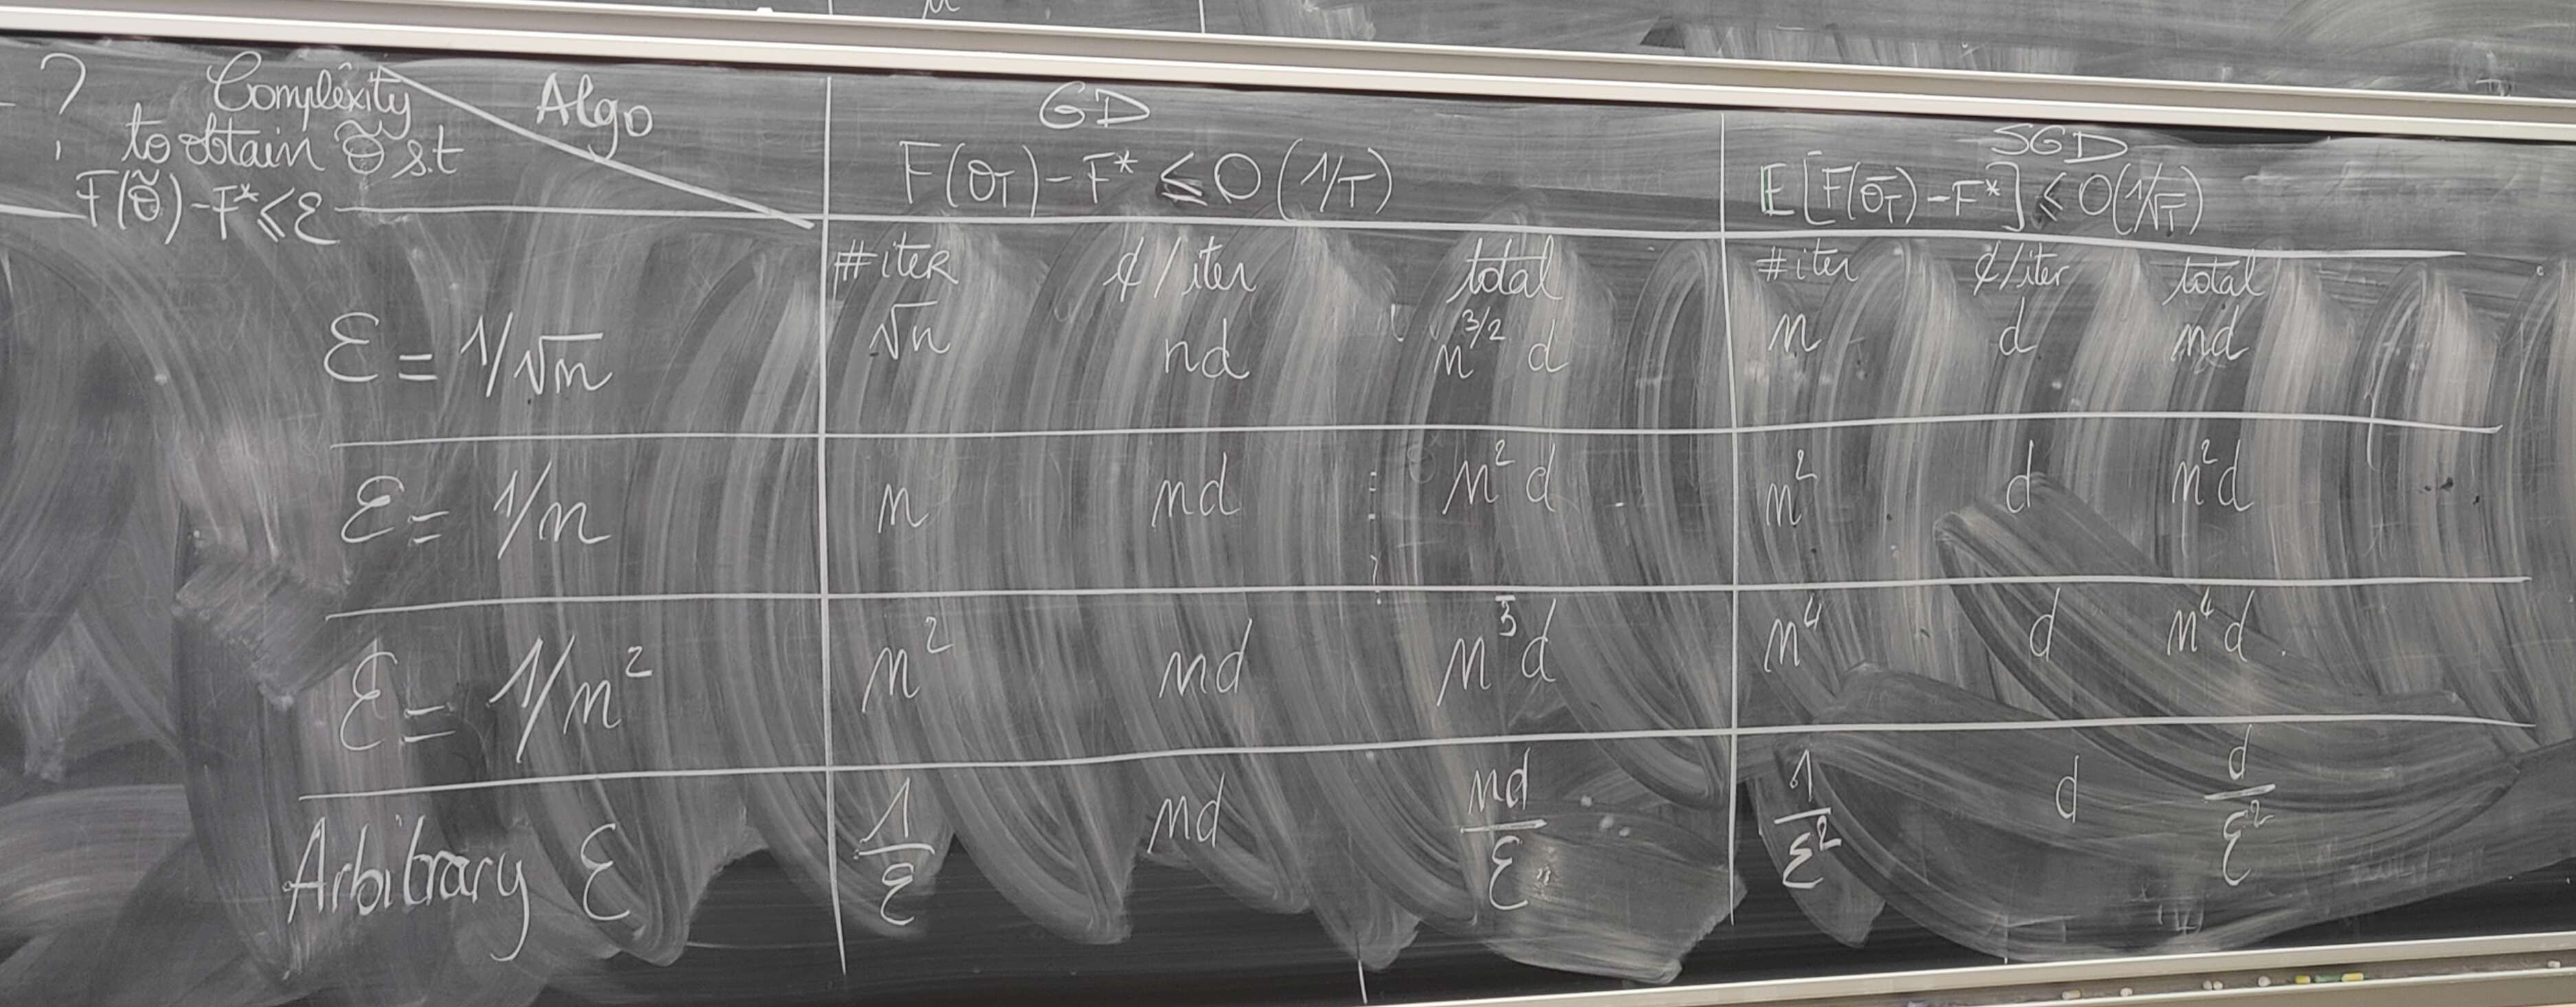 ?
Complexity Algo GD SGD
to obtain θ̃ s.t F(θ_T) - F* ≤ O(1/T) E[F(θ̄_T) - F*] ≤ O(1/√T)
F(θ̃) - F* ≤ ε
#iter ¢/iter total #iter ¢/iter total
ε = 1/√n √n nd n^{3/2} d n d nd
ε = 1/n n nd n² d n² d n² d
ε = 1/n² n² nd n³ d n⁴ d n⁴ d
Arbitrary ε 1/ε nd nd/ε 1/ε² d d/ε²